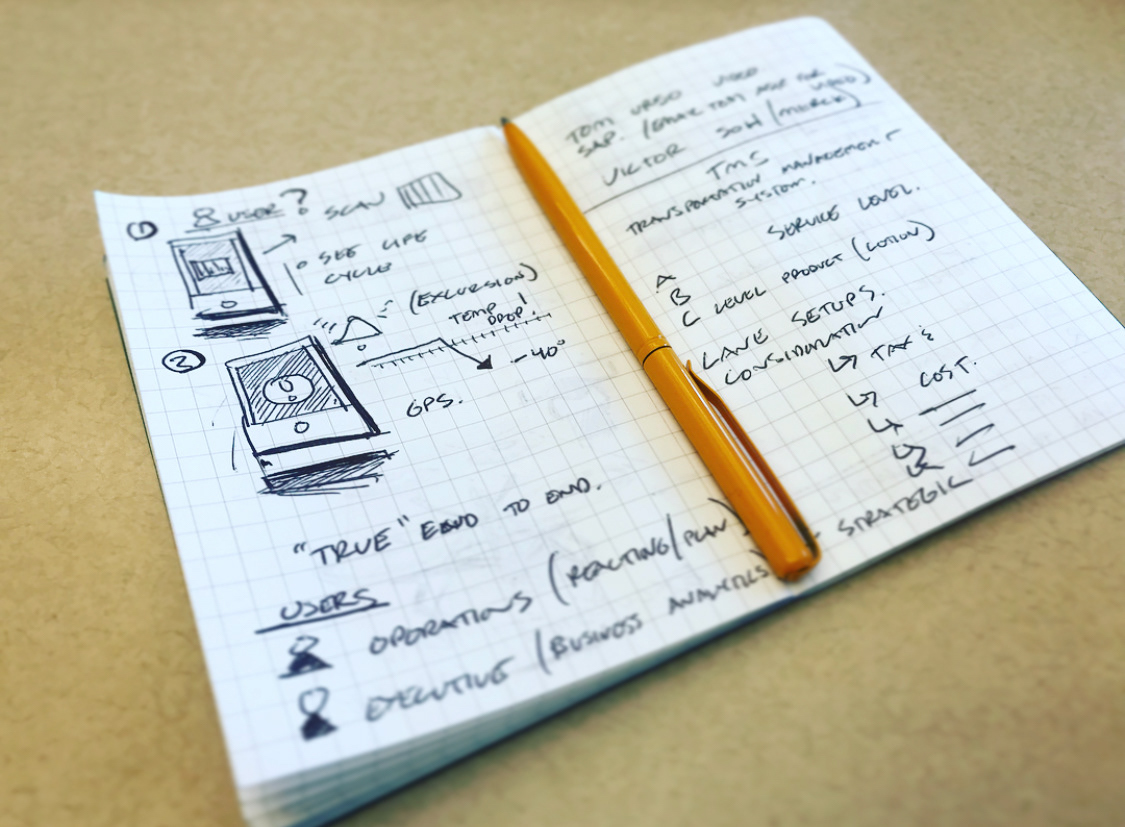 ① & USER?
SCAN
SEE LIFE
CYCLE
(EXCURSION)
TEMP
DROP!
②
-40°
GPS.
"TRUE" END TO END.
USERS
OPERATIONS (REACTING/PLAN)
EXECUTIVE (BUSINESS ANALYTICS) STRATEGIC
TOM URSO VIDEO
SAP. (EMAIL TOM ASK FOR
VIDEO)
VICTOR SOH (MERCK)
TMS
TRANSPORTATION MANAGEMENT
SYSTEM.
SERVICE LEVEL.
A
B
C LEVEL PRODUCT (LOTION)
LANE SETUPS.
CONSIDERATION
↳ TAX &
↳ COST.